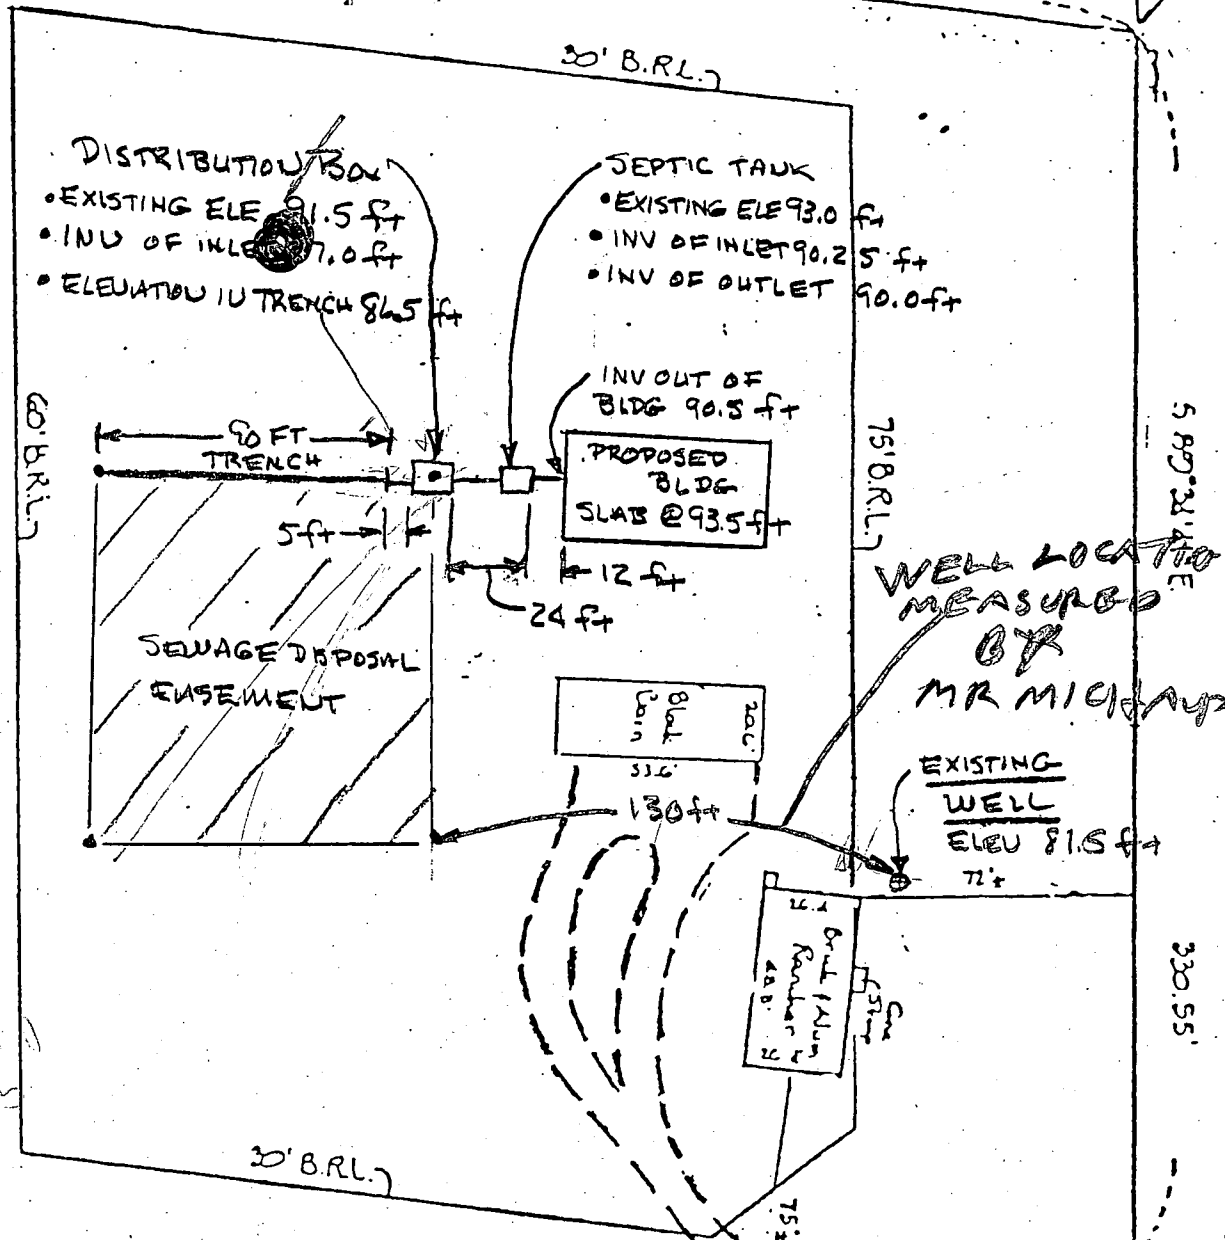 30' B.R.L.
DISTRIBUTION BOX
• EXISTING ELE 91.5 ft
• INV OF INLET 7.0 ft
• ELEVATION IN TRENCH 86.5 ft
SEPTIC TANK
• EXISTING ELE 93.0 ft
• INV OF INLET 90.25 ft
• INV OF OUTLET 90.0 ft
INV OUT OF
BLDG 90.5 ft
60' B.R.L.
90 FT
TRENCH
PROPOSED
BLDG
SLAB @ 93.5 ft
75' B.R.L.
5 ft
12 ft
24 ft
WELL
MEASURED
BY
MR
SEWAGE DISPOSAL
EASEMENT
Block
33.6'
130 ft
EXISTING
WELL
ELEV 81.5 ft
72'±
Brick
Rancher
Conc
330.55'
30' B.R.L.
75'±